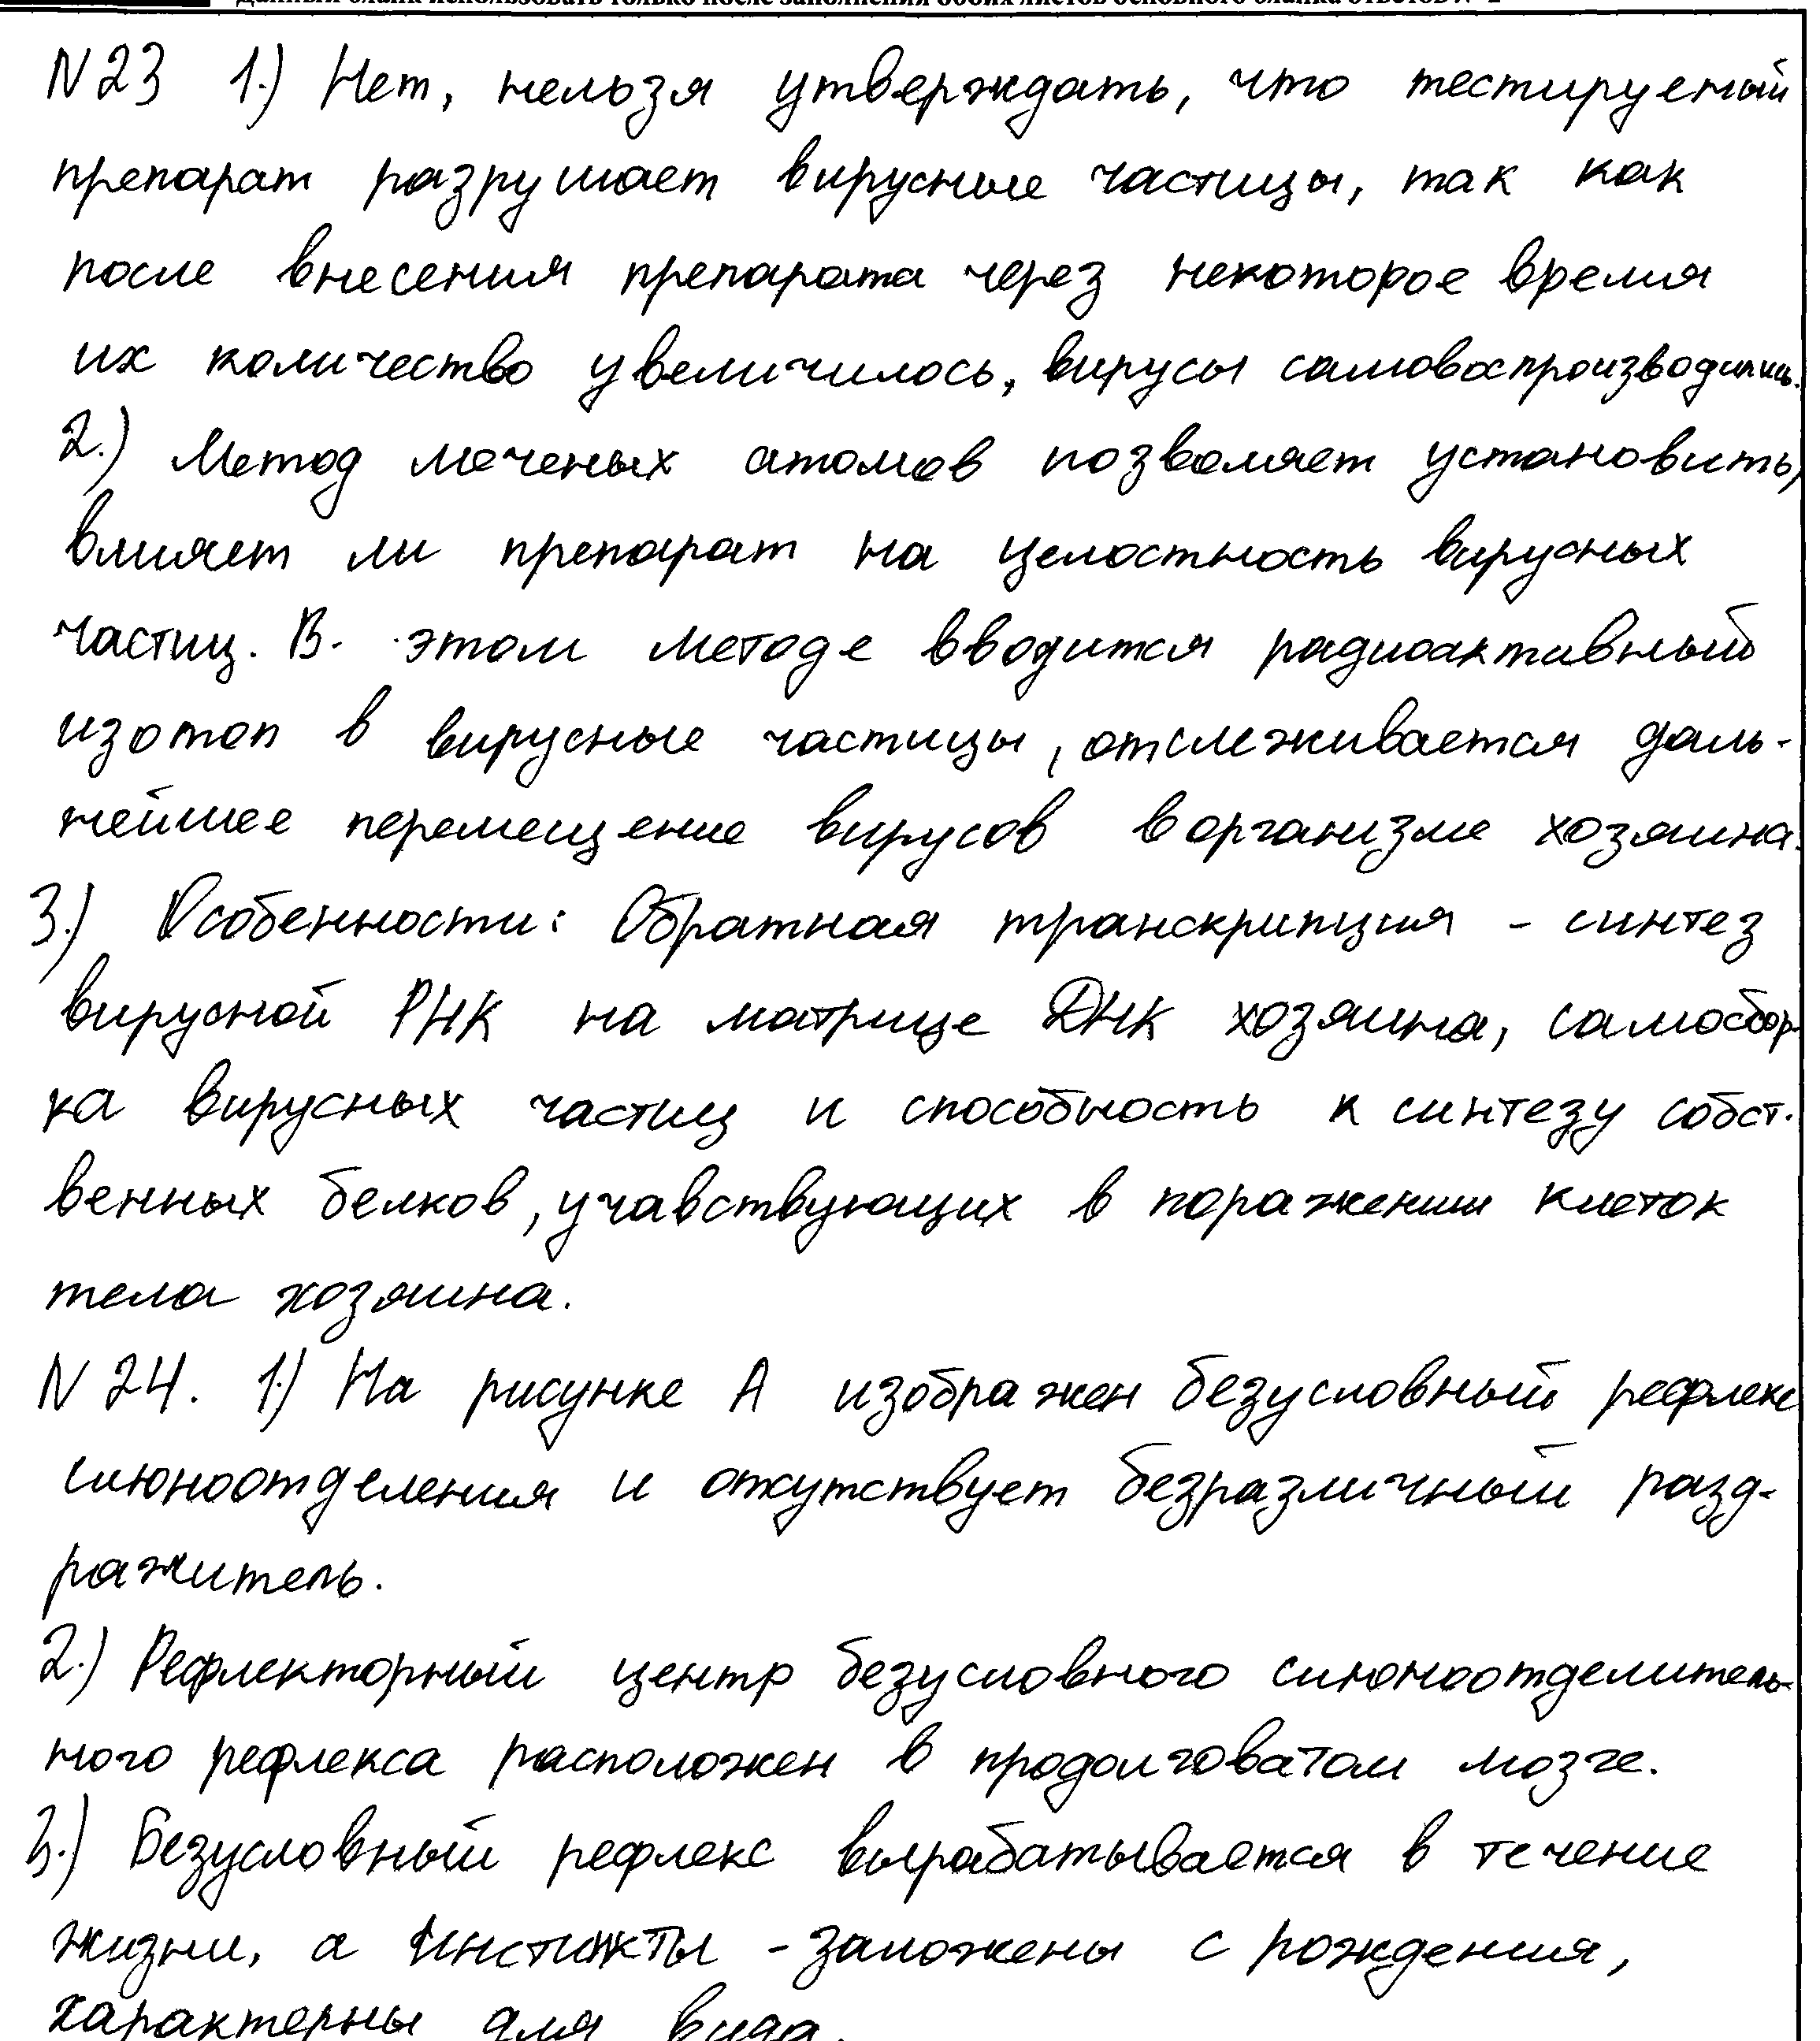 Данный бланк использовать только после заполнения обоих листов основного бланка ответов № 2
N23 1.) Нет, нельзя утверждать, что тестируемый
препарат разрушает вирусные частицы, так как
после внесения препарата через некоторое время
их количество увеличилось, вирусы самовоспроизводились.
2.) Метод меченых атомов позволяет установить,
влияет ли препарат на целостность вирусных
частиц. В этом методе вводится радиоактивный
изотоп в вирусные частицы, отслеживается даль-
нейшее перемещение вирусов в организме хозяина.
3.) Особенности: Обратная транскрипция - синтез
вирусной РНК на матрице ДНК хозяина, самосбор-
ка вирусных частиц и способность к синтезу собст-
венных белков, учавствующих в поражении клеток
тела хозяина.
N 24. 1.) На рисунке А изображен безусловный рефлекс
слюноотделения и отсутствует безразличный разд-
ражитель.
2.) Рефлекторный центр безусловного слюноотделитель-
ного рефлекса расположен в продолговатом мозге.
3.) Безусловный рефлекс вырабатывается в течение
жизни, а инстинкты - заложены с рождения,
характерны для вида.